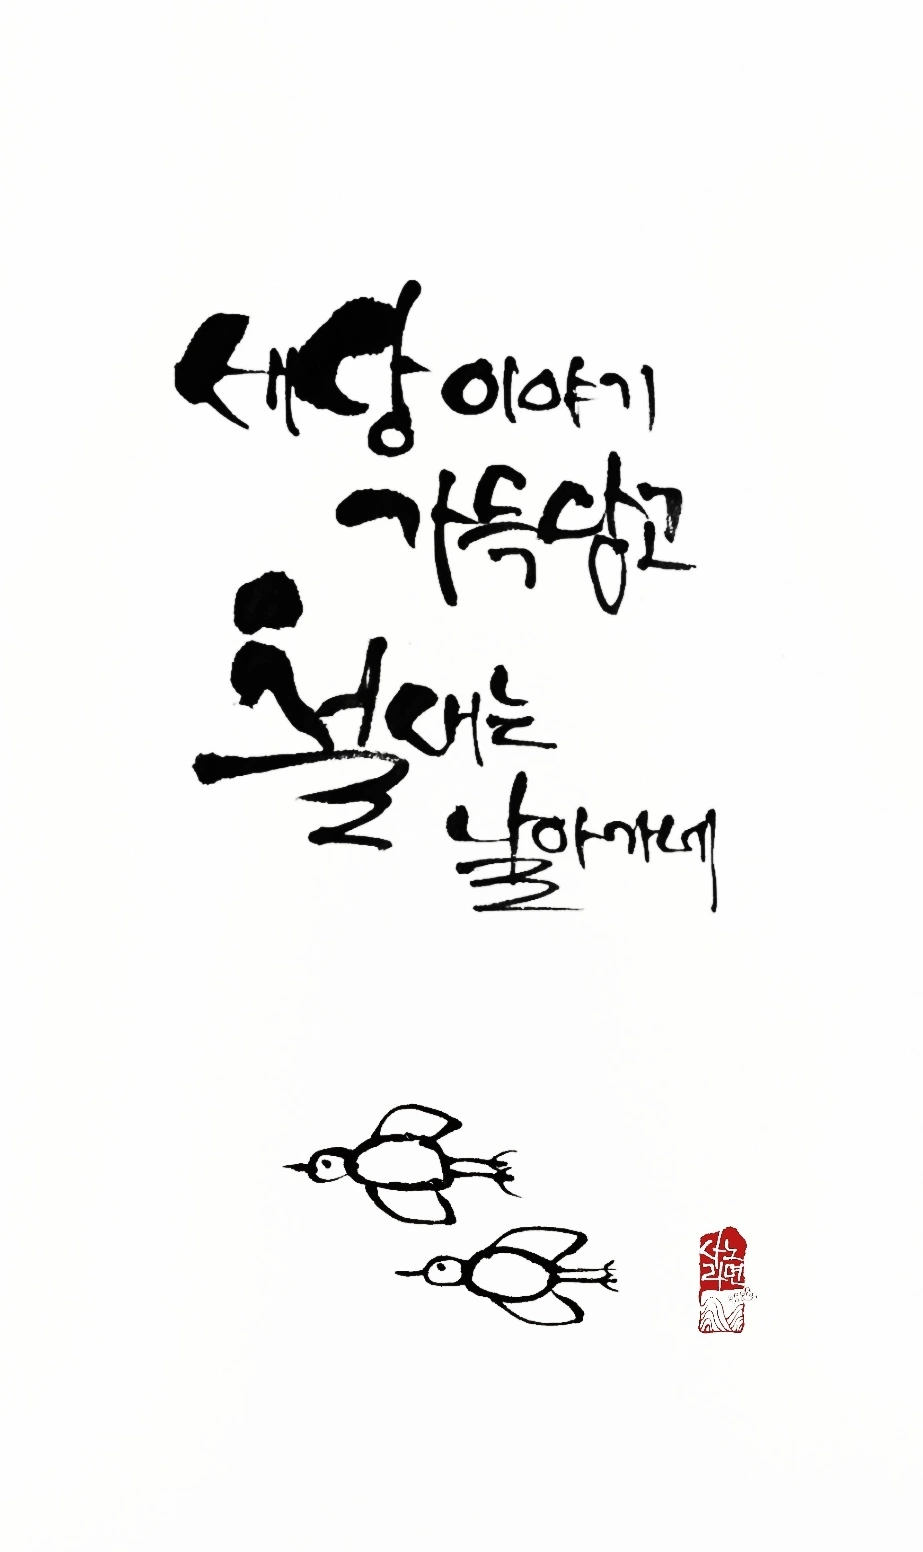 세상 이야기
가득 담고
철새는
날아가네
사노
라면